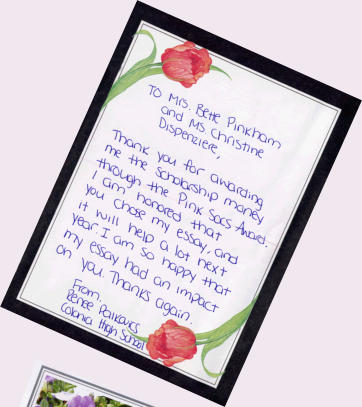 To Mrs. Bette Pinkham
and Ms. Christine
Dispenziere,
Thank you for awarding
me the scholarship money
through the Pink Socs Award.
I am honored that
you chose my essay, and
it will help a lot next
year. I am so happy that
my essay had an impact
on you. Thanks again.
From,
Renee
Colonia High School